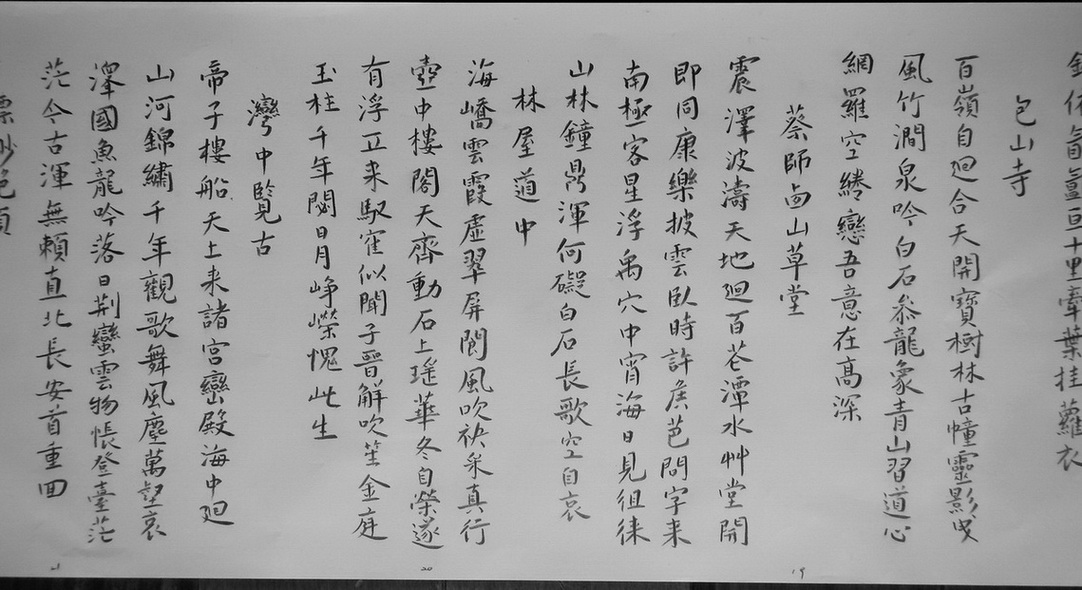 包山寺
百嶺自迴合天開寶樹林古幢靈影曳
風竹澗泉吟白石參龍象青山習道心
網羅空綣戀吾意在高深
蔡師西山草堂
震澤波濤天地迴百花潭水艸堂開
即同康樂披雲臥時許侯芭問字来
南極一客星浮禹穴中宵海日見徂徠
山林鐘鼎渾何礙白石長歌空自哀
林屋道中
海嶠雲霞虛翠屏閬風吹袂采真行
壺中樓閣天齊動石上瑤華冬自榮遂
有浮丘来馭寉似聞子晉解吹笙金庭
玉柱千年閟日月崢嶸愧此生
灣中覽古
帝子樓船天上来諸宮巒殿海中迴
山河錦繡千年觀歌舞風塵萬壑哀
澤國魚龍吟落日荆蠻雲物悵登臺茫
茫今古渾無賴直北長安首重回
21
20
19